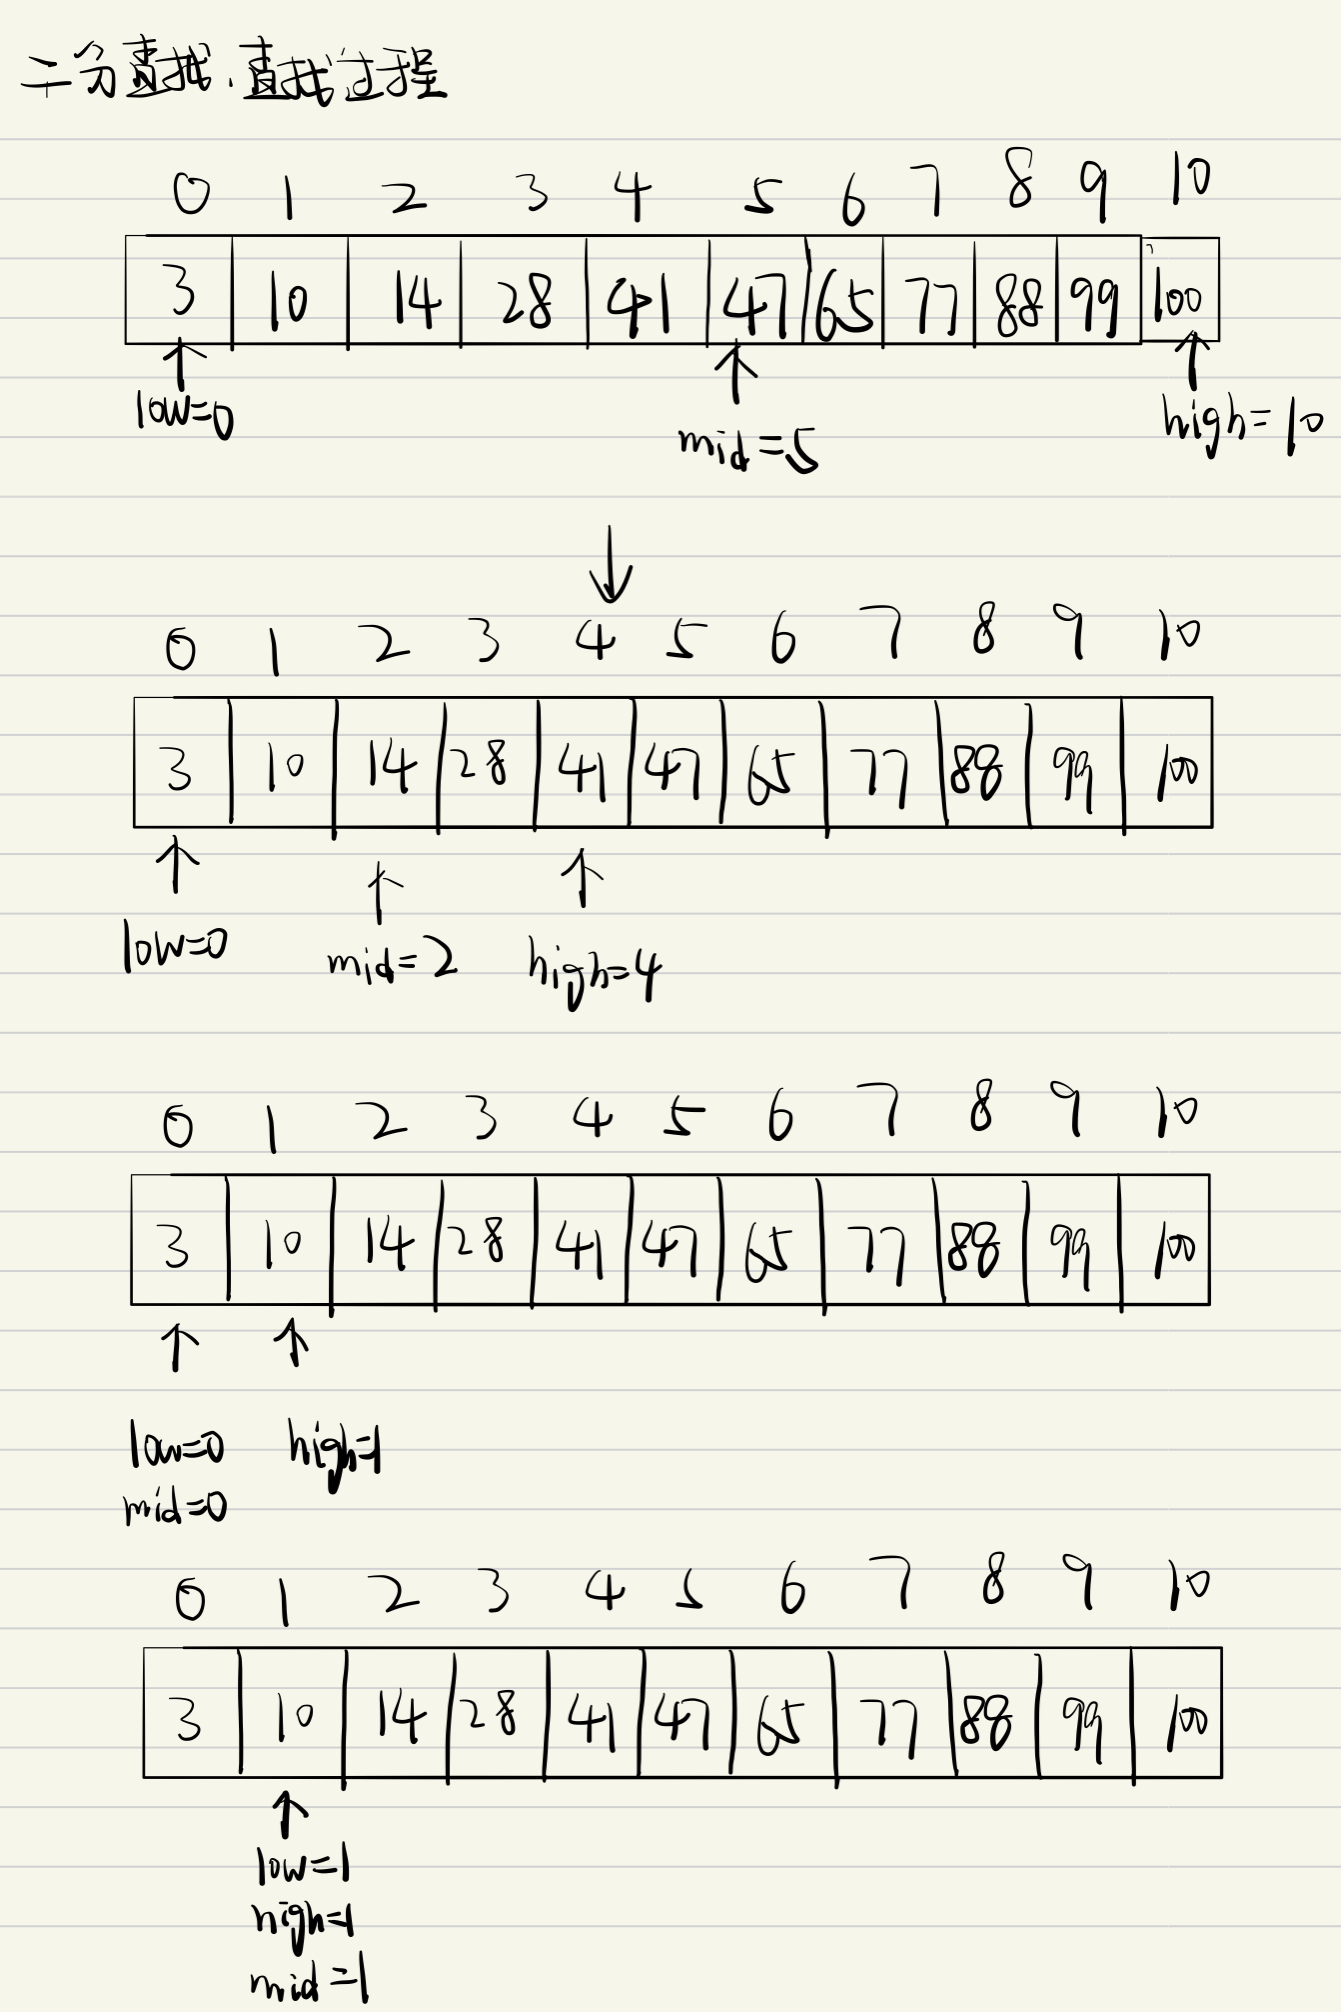 二分查找.查找过程
0 1 2 3 4 5 6 7 8 9 10
3 10 14 28 41 47 65 77 88 99 100
low=0 mid=5 high=10
0 1 2 3 4 5 6 7 8 9 10
3 10 14 28 41 47 65 77 88 99 100
low=0 mid=2 high=4
0 1 2 3 4 5 6 7 8 9 10
3 10 14 28 41 47 65 77 88 99 100
low=0 high=1
mid=0
0 1 2 3 4 5 6 7 8 9 10
3 10 14 28 41 47 65 77 88 99 100
low=1
high=1
mid=1